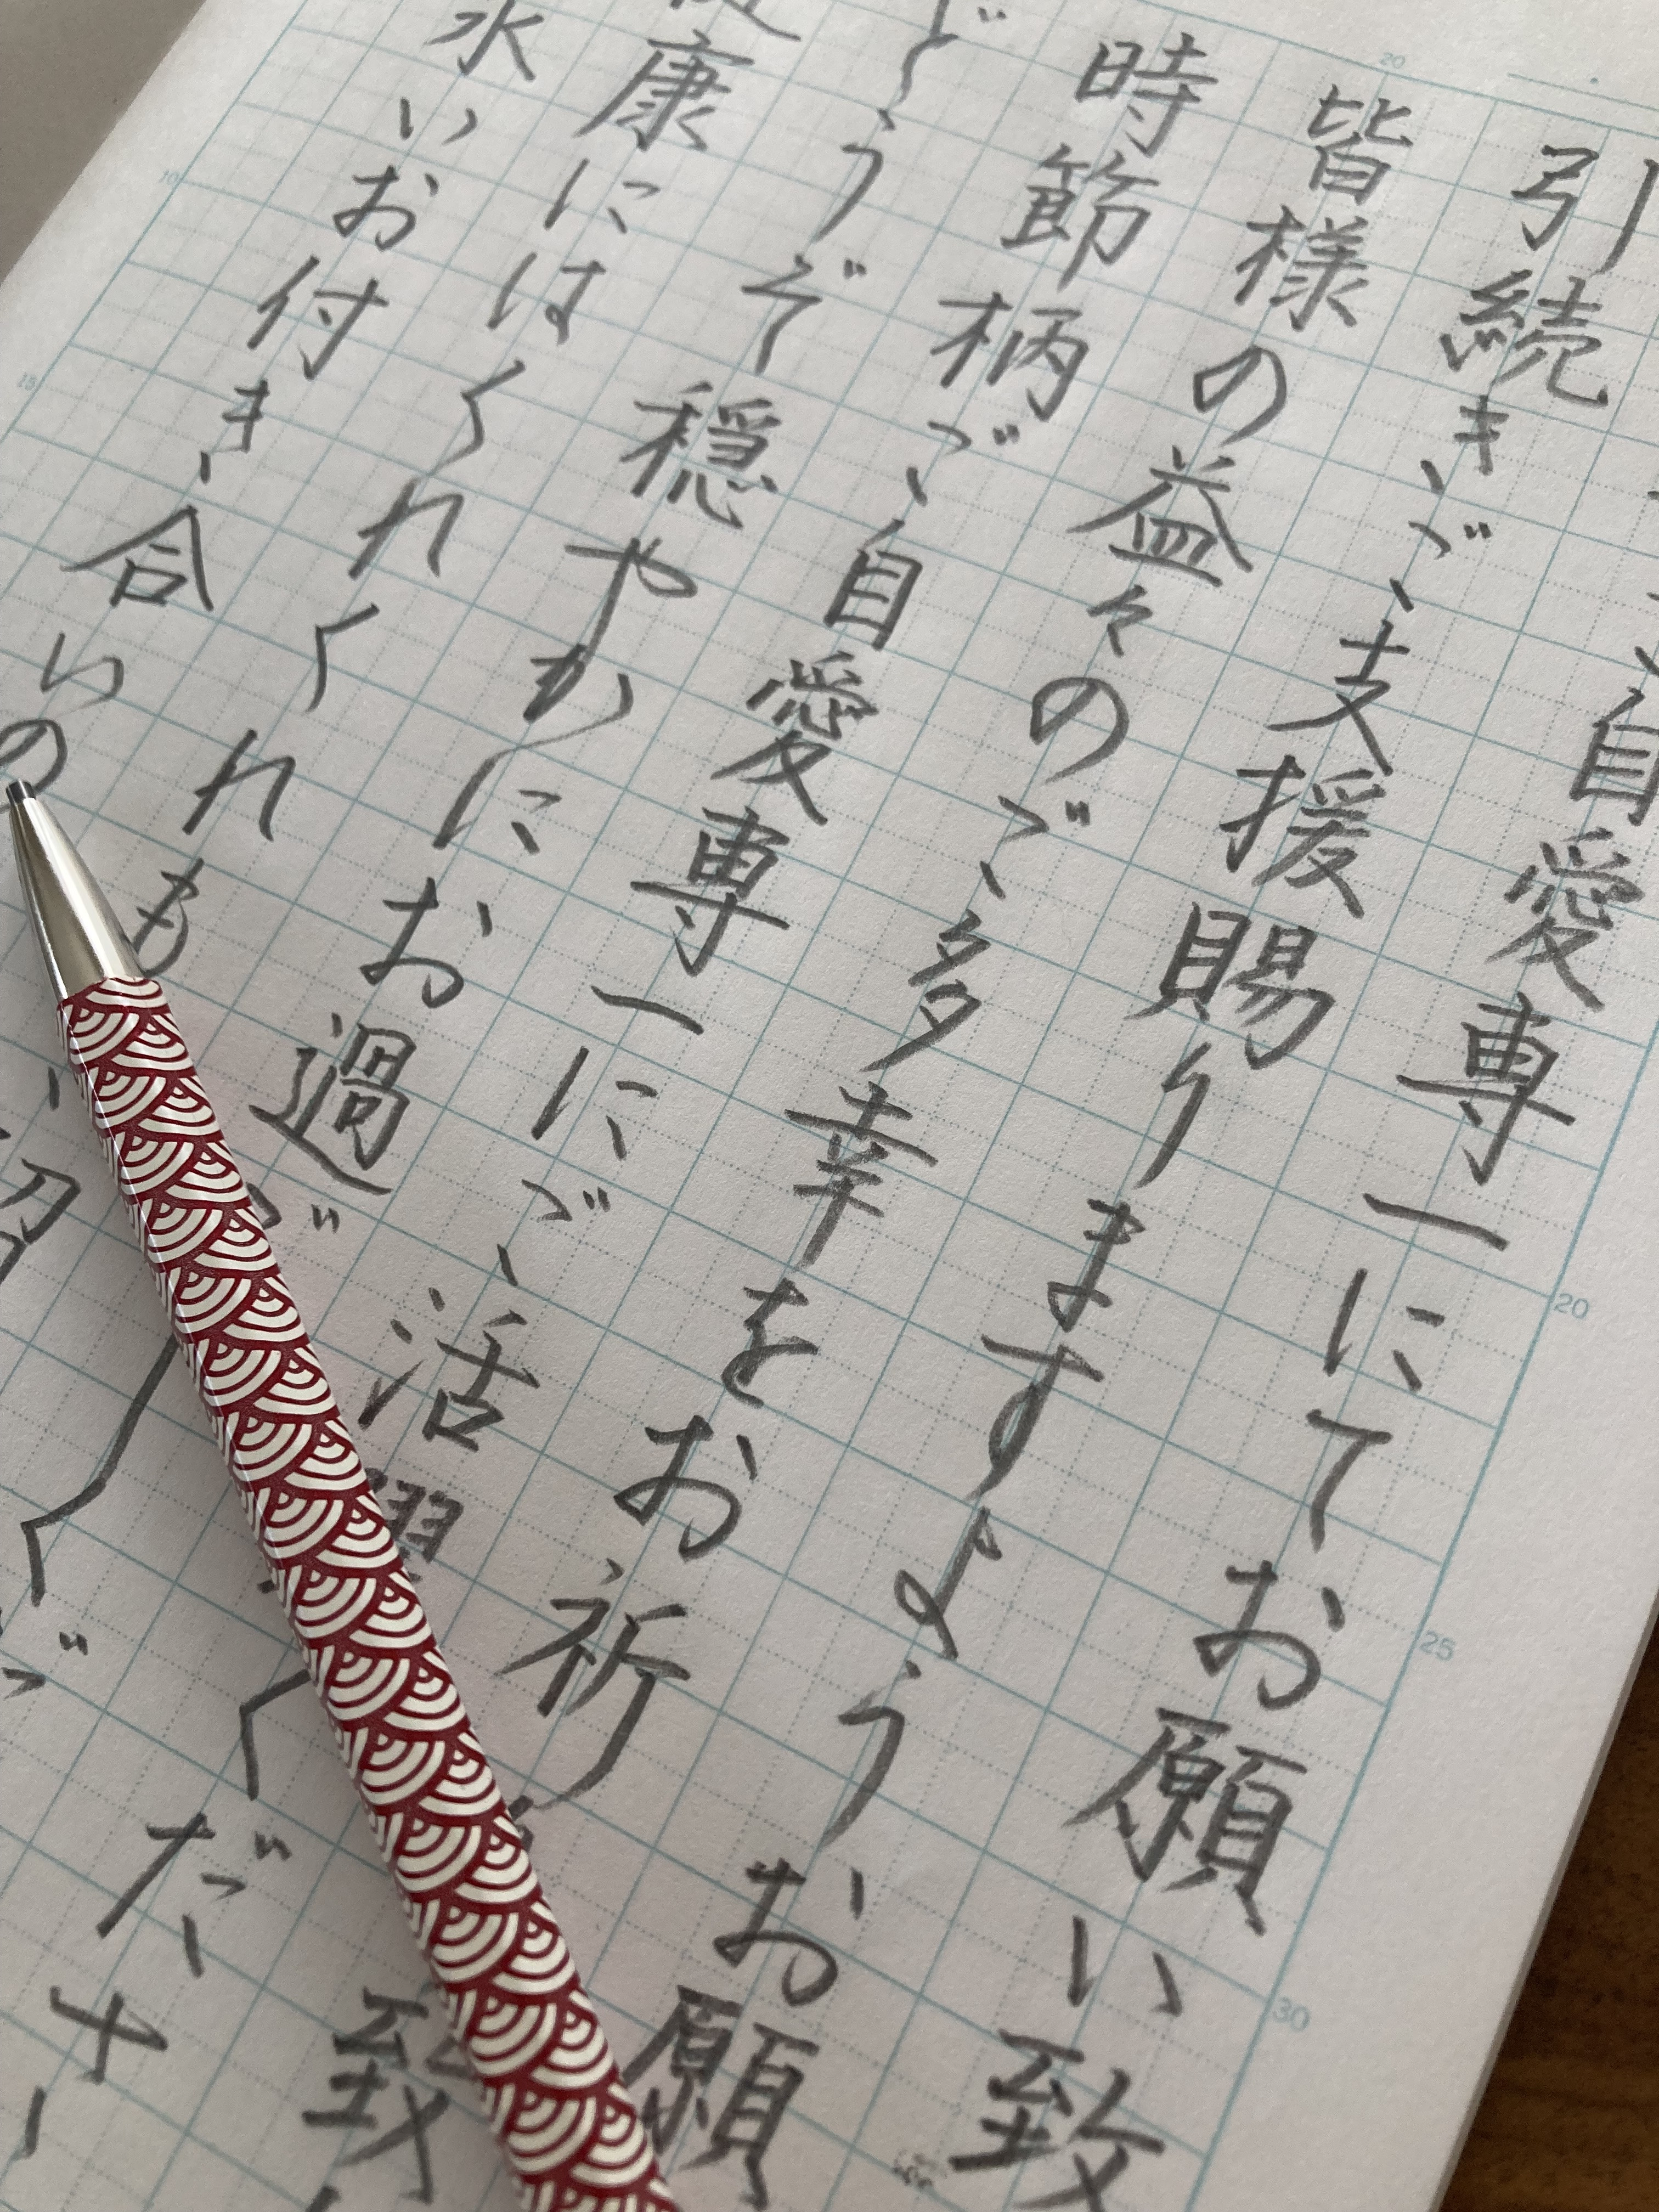 自愛専一にてお願い致
引続きご支援賜りますようお願
皆様の益々のご多幸をお祈り致
時節柄ご自愛専一にご活躍くださ
どうぞ穏やかにお過ごしくだ
康にはくれくれも
いお付き合いの
20
20
25
30
10
15